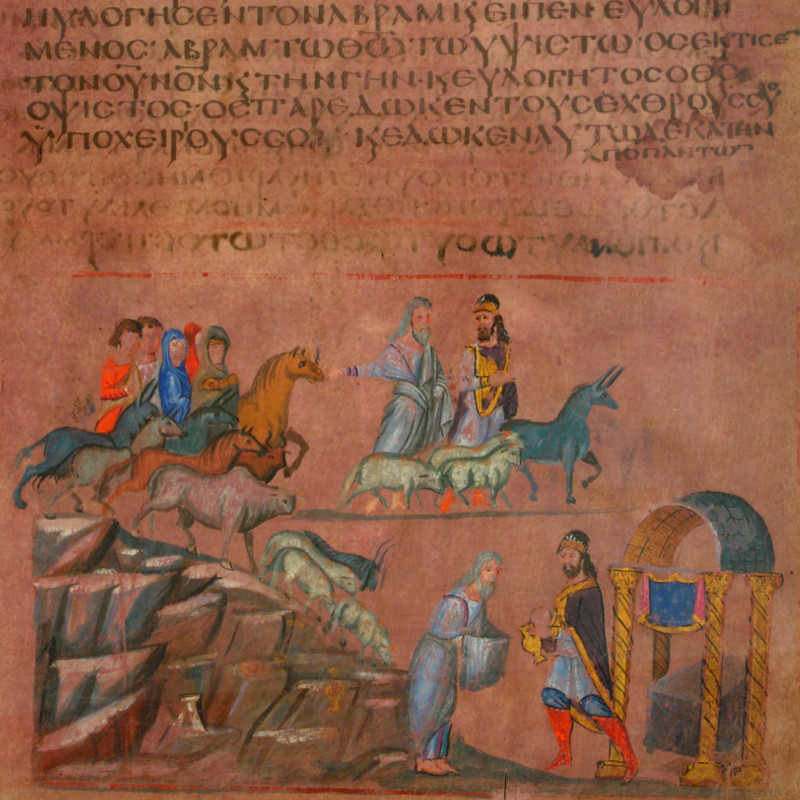 ΗΥΛΟΓΗϹΕΝΤΟΝΑΒΡΑΜϏΕΙΠΕΝ·ΕΥΛΟΓΗ
ΜΕΝΟϹ·ΑΒΡΑΜ·ΤΩΘΩ̅·ΤΩΥΨΙϹΤΩ·ΟϹΕΚΤΙϹΕ
ΤΟΝΟΥΝΟ̅Ν̅ϏΤΗΝΓΗΝ·ϏΕΥΛΟΓΗΤΟϹΟΘϹ̅
ΟΫΨΙϹΤΟϹ·ΟϹΠΑΡΕΔΩΚΕΝΤΟΥϹΕΧΘΡΟΥϹϹΟΥ
ΫΠΟΧΕΙΡΟΥϹϹΟΙ·ϏΕΔΩΚΕΝΑΥΤΩΔΕΚΑΤΗΝ
ΑΠΟΠΑΝΤΩΝ